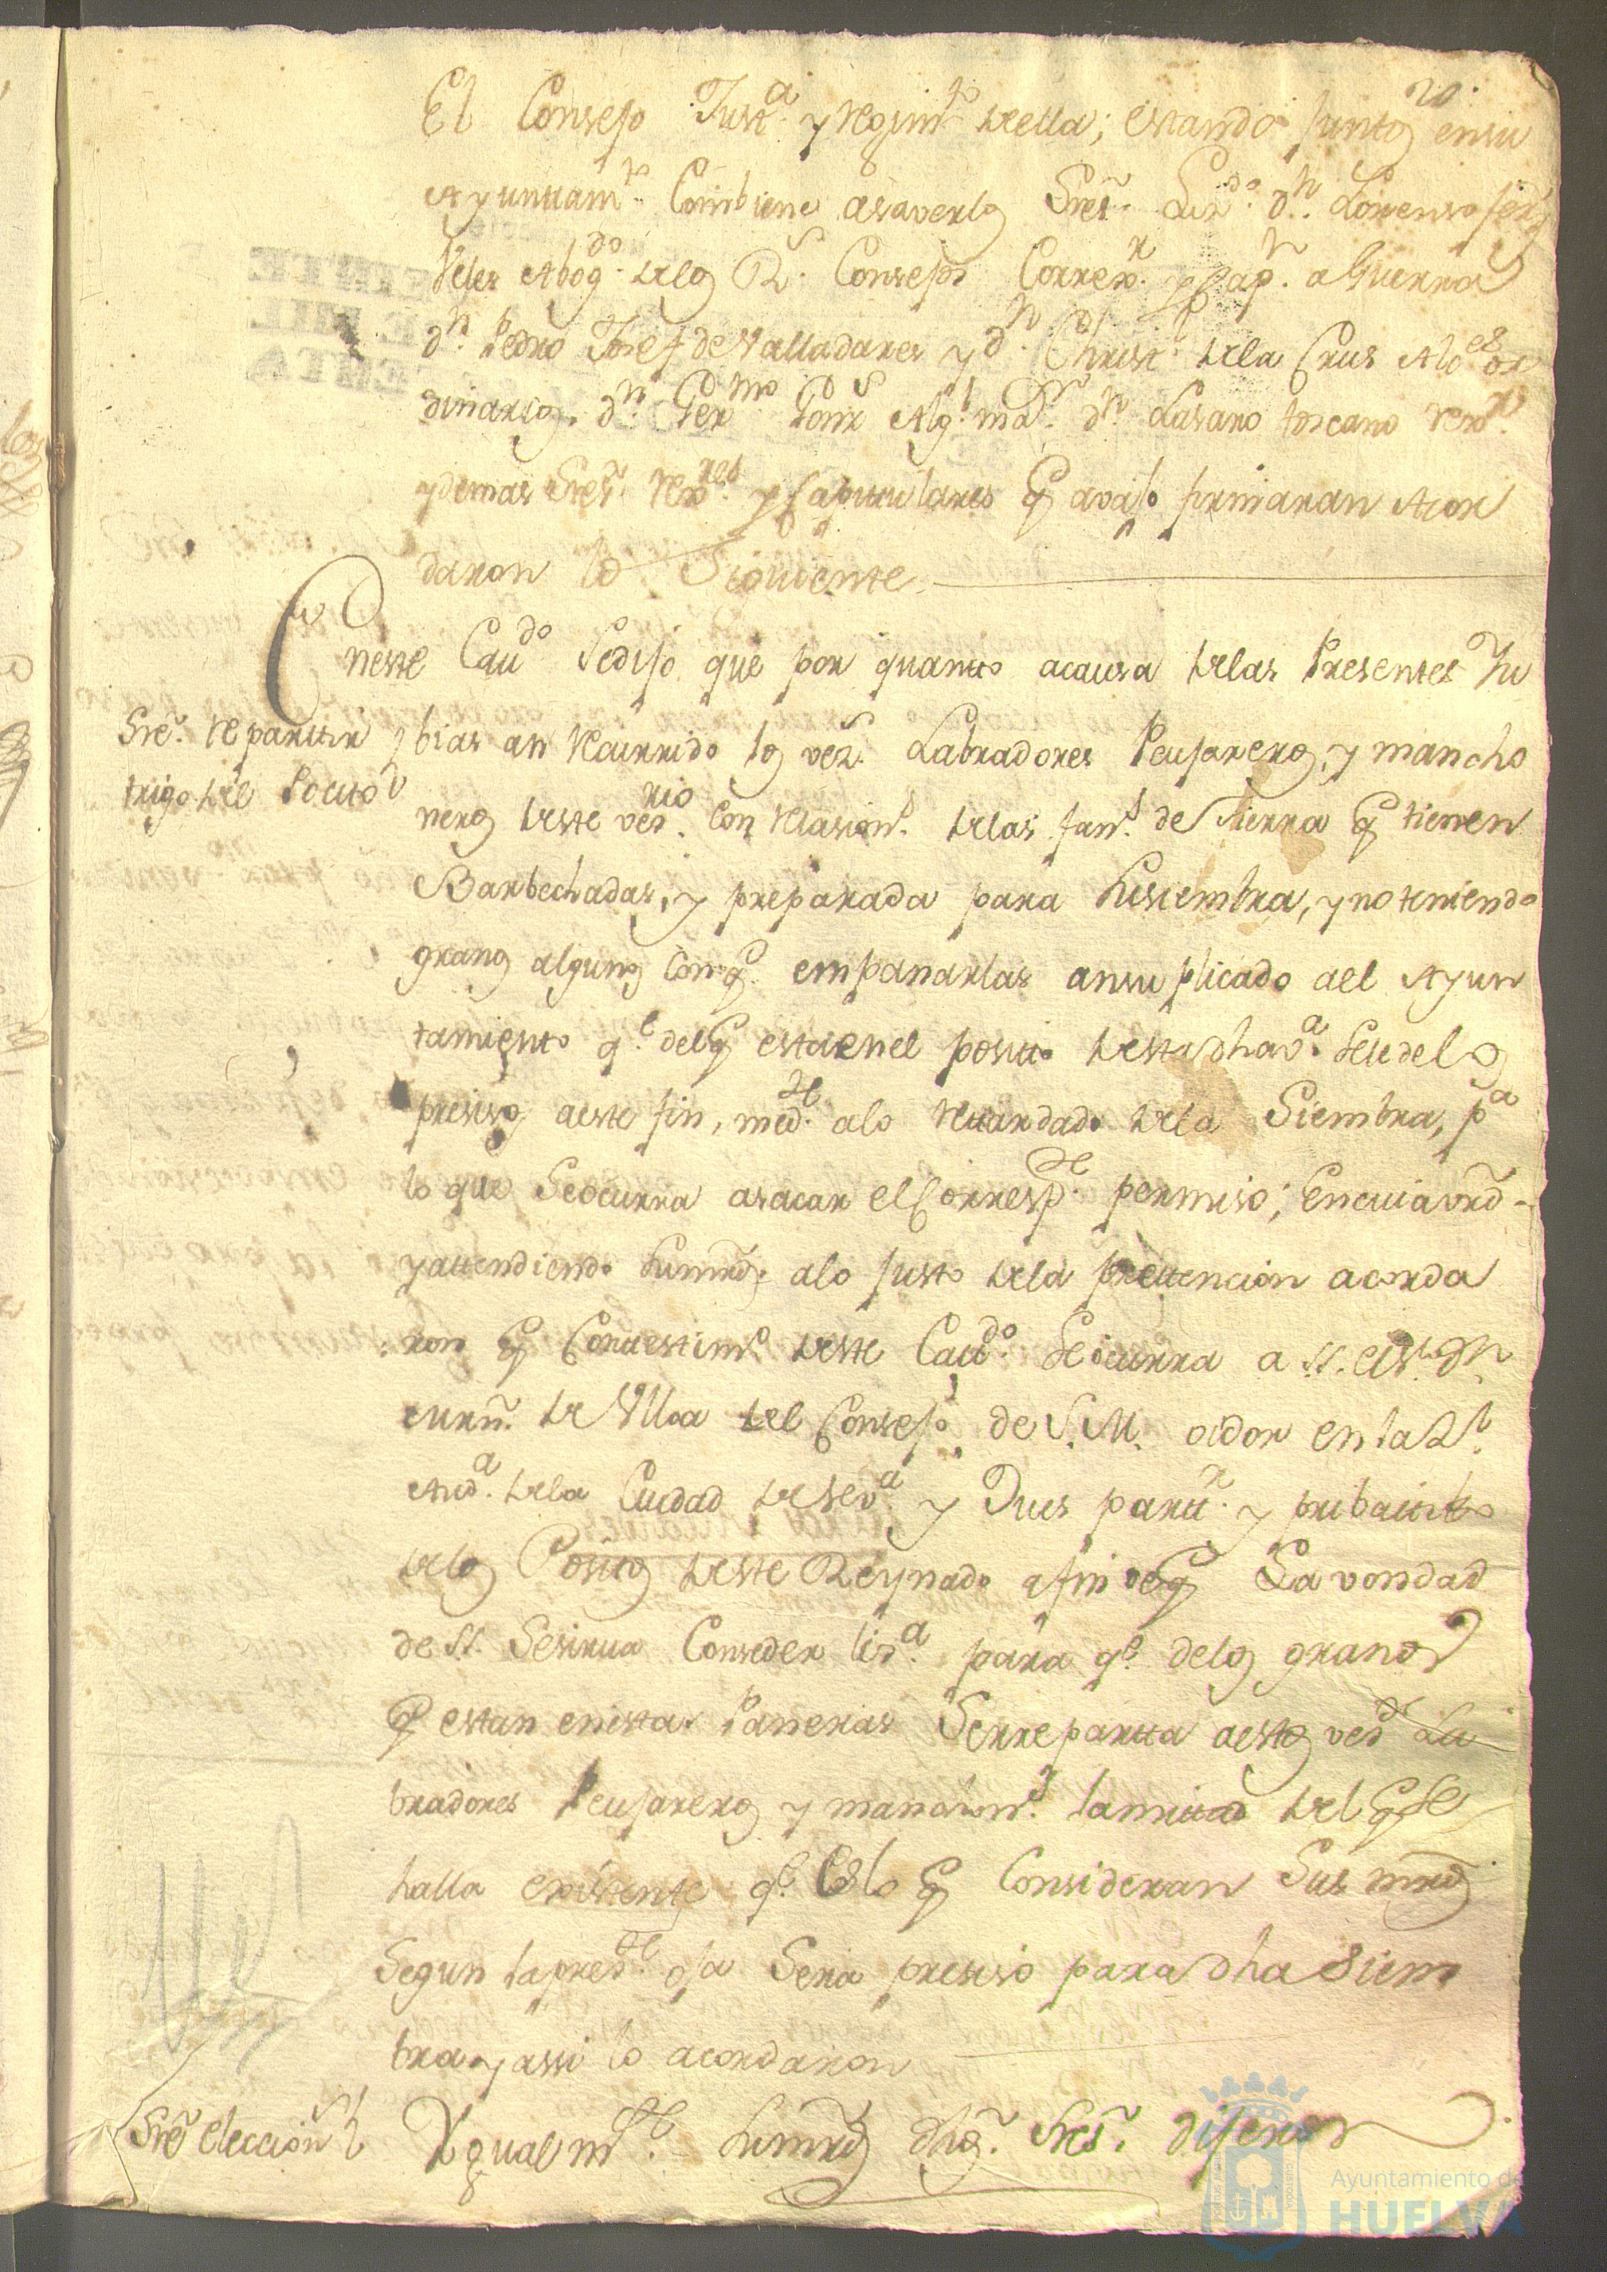 20.
El Consejo Justª. y Regimto. della; estando juntos en su
Ayuntamto. Combiene a saver los Sres. Lizdo. dn. Lorenso
Veles Abogdo. de los Rs. Consejos Correxr. y Capn. a Guerra
dn. Pedro Josef de Valladares y dn. Christl. de la Crus Alces or
dinarios, dn. Algl. mor. dn. Lasaro toscano Rexor.
y demas Sres. Rexres. y Capitulares q avajo firmaran Acor
daron lo Siguiente
En este Cavdo. Se dijo que por quanto a causa de las Presentes Llu
Sre. Repartir
trigo del Posito
bias an Recurrido los vezs. Labradores Peujareros, y mancho
neros deste vesrio. con Relasions. de las fans. de tierra q tienen
Barbechadas, y preparada para su siembra, y no teniendo
granos algunos con q. empanarlas an suplicado a el Ayun
tamiento qe. del q esta en el posito desta dha vª. se le de los
presisos a este fin, medte. a lo Retardado de la Siembra, pª
lo que Se ocurra a sacar el Correspte. permiso; En cuia vrd
y attendiendo Sus mrds. a lo justo de la prettencion acorda
ron q Con testimo. deste Cavdo. Se ocurra a SS. el Sr. Dn.
de Ulloa del Consejo de S.M. oidor en la Rl.
Audª. de la Ciudad de Sevª. y Jues partr. y pribatibo
de los Positos deste Reynado a fin de q La vondad
de SS. Se sirva Conseder lisª. para qe. de los granos
q estan en estas Paneras Se rreparta a estos vesos La
bradores Peujareros y manchons. la mitad del q se
halla existente qe. Es lo q Consideran Sus mrds
Segun la preste. oja Sera presiso para dha Siem
bra y assi lo acordaron
Sre eleccion
Ygualmte. Sus mrds dhos. Sres. dijeron
Ayuntamiento de
HUELVA